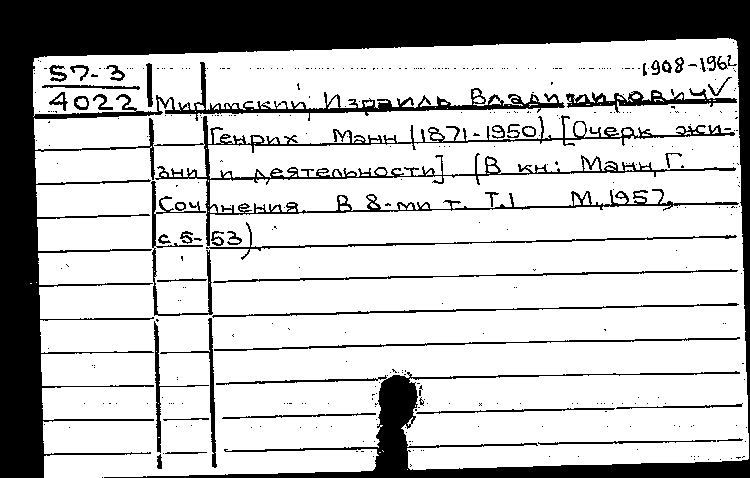 57-3
4022
1908-1962
Миримский, Израиль Владимирович,
Генрих Манн (1871-1950). [Очерк жи-
зни и деятельности]. (В кн: Манн, Г.
Сочинения. В 8-ми т. Т.1 М., 1957,
с. 5-53).